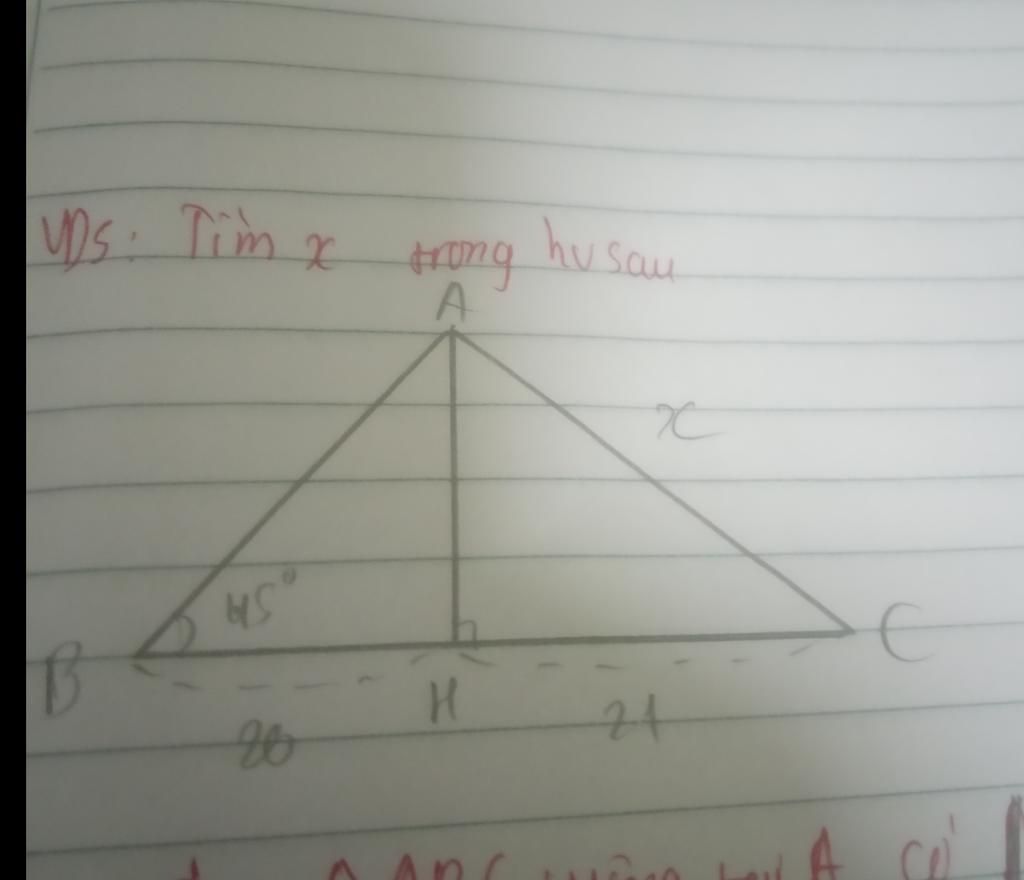 VD5: Tìm x trong hv sau
A
x
45°
B
C
H
20
21
A có